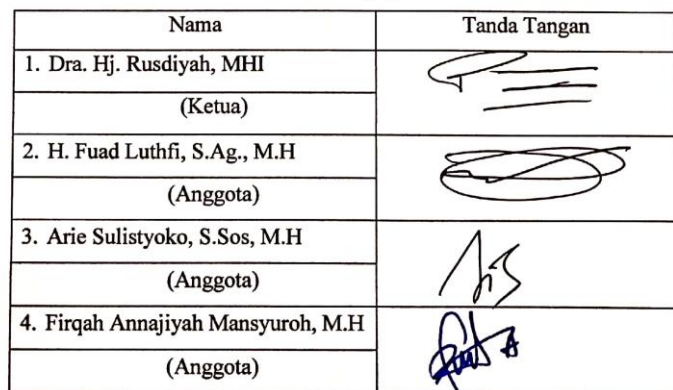 Nama Tanda Tangan
1. Dra. Hj. Rusdiyah, MHI
(Ketua)
2. H. Fuad Luthfi, S.Ag., M.H
(Anggota)
3. Arie Sulistyoko, S.Sos, M.H
(Anggota)
4. Firqah Annajiyah Mansyuroh, M.H
(Anggota)